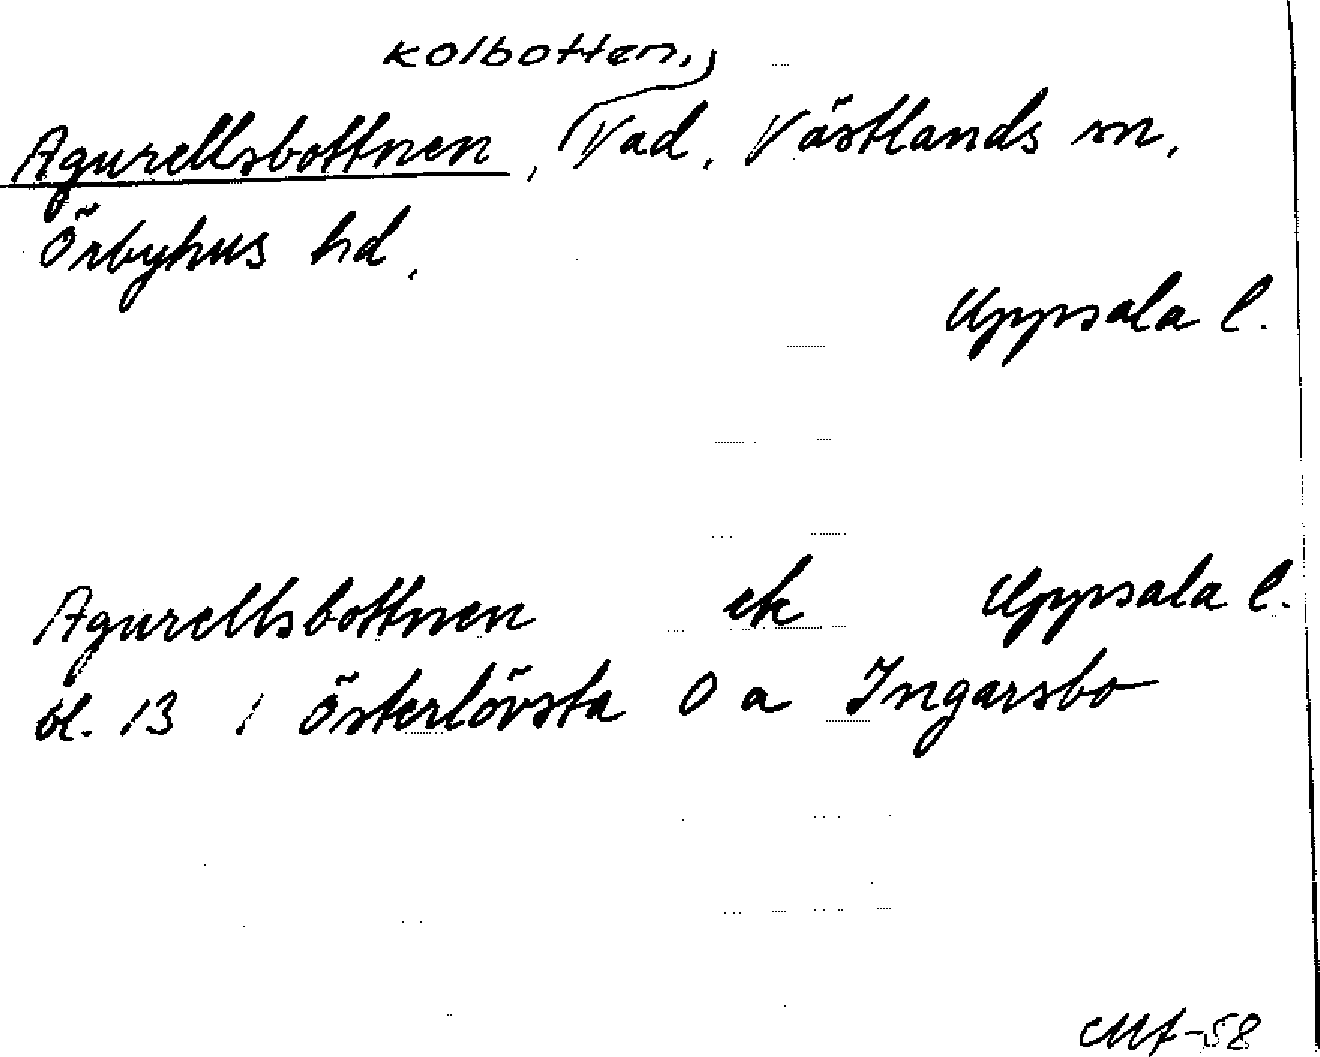 kolbotten,
Agurellsbottnen, Vad, Västlands sn,
Örbyhus hd,
Uppsala l.
Agurellsbottnen ek Uppsala l.
bl. 13 / Österlövsta O a Ingarsbo
-58